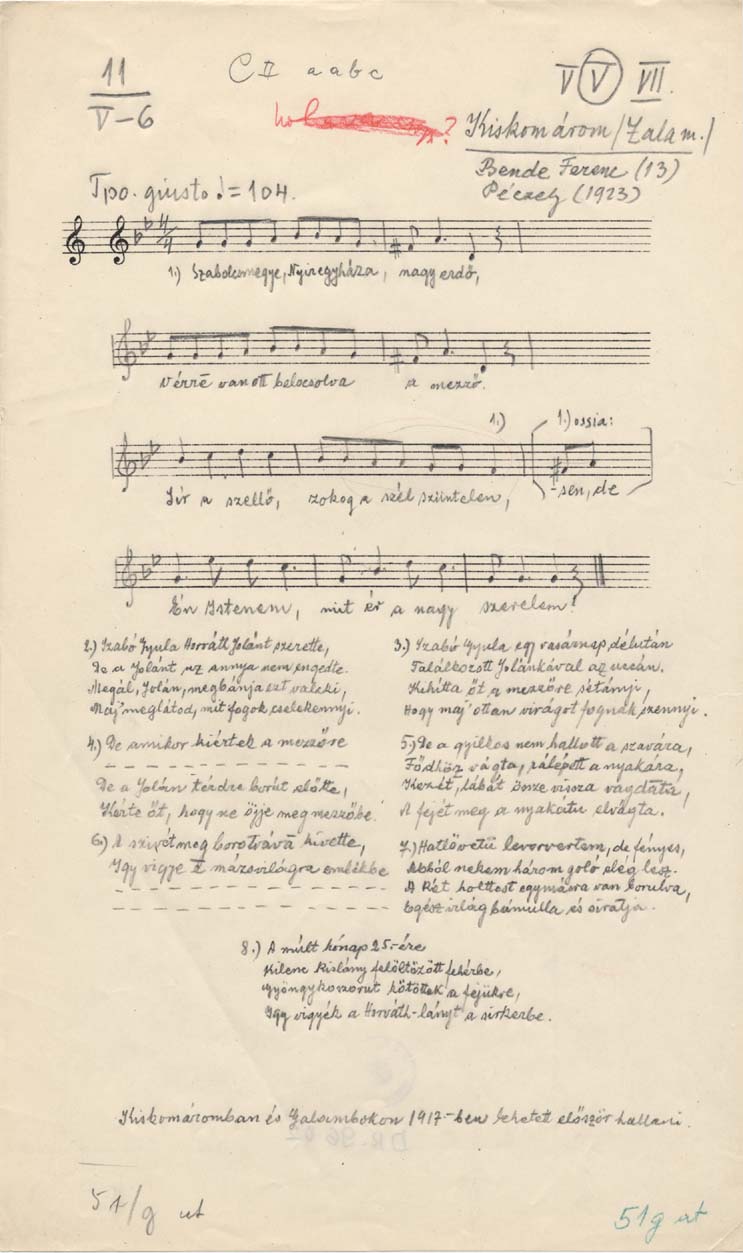 11
V-6
C II a a b c
V V VII.
ho ?
Kiskomárom (Zala m.)
Bende Ferenc (13)
Péczely (1923)
Tpo. giusto ♩= 104.
4/4
1.) Szabolcsmegye, Nyiregyháza, nagy erdő,
Vérré van ott belocsolva a mező.
1.) 1.) ossia:
Sír a szellő, zokog a szél szüntelen, -sen, de
Én Istenem, mit ér a nagy szerelem!
2.) Szabó Gyula Horváth Jolánt szerette,
De a Jolánt az annya nem engedte.
Megál, Jolán, megbánja ezt valaki,
Maj' meglátod, mit fogok cselekennyi.
3.) Szabó Gyula egy vasárnap délután
Találkozott Jolánkával az uccán.
Kihítta őt a mezőre sétányi,
Hogy maj' ottan virágot fognak szennyi.
4.) De amikor kiértek a mezőre
De a Jolán térdre borút előtte,
Kérte őt, hogy ne öjje meg mezőbe.
5.) De a gyilkos nem hallott a szavára,
Födhöz vágta, rálépett a nyakára,
Kezét, lábát össze vissza vagdata,
A fejét meg a nyakátu elvágta.
6.) A szivét meg borotvává kivette,
Igy vigye a másvilágra emlékbe
7.) Hatlövetű levorvertem, de fényes,
Abból nekem három goló elég lesz.
A két holttest egymásra van borulva,
Egész világ bámulla és siratja.
8.) A múlt hónap 25.-ére
Kilenc kislány felöltözött fehérbe,
Gyöngykoszorut kötöttek a fejükre,
Igy vigyék a Horváth-lányt a sirkerbe.
Kiskomáromban és Galambokon 1917-ben lehetett először hallani.
51/g ut
51g at